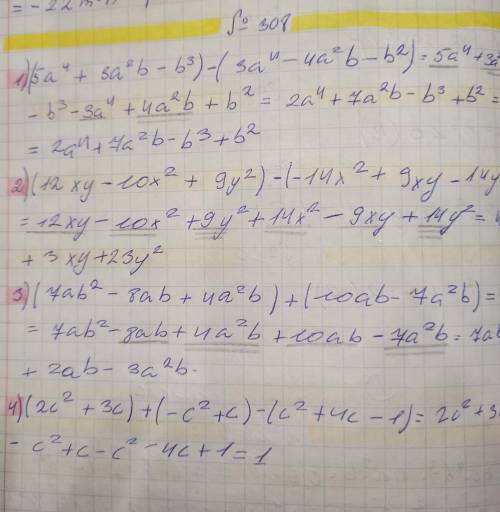 = -22m
№ 308
1) (5a⁴ + 3a²b - b³) - (3a⁴ - 4a²b - b²) = 5a⁴ + 3a
- b³ - 3a⁴ + 4a²b + b² = 2a⁴ + 7a²b - b³ + b² =
= 2a⁴ + 7a²b - b³ + b²
2) (12xy - 10x² + 9y²) - (-14x² + 9xy - 14y
= 12xy - 10x² + 9y² + 14x² - 9xy + 14y² = 4
+ 3xy + 23y²
3) (7ab² - 8ab + 4a²b) + (10ab - 7a²b) =
= 7ab² - 8ab + 4a²b + 10ab - 7a²b = 7a
+ 2ab - 3a²b.
4) (2c² + 3c) + (-c² + c) - (c² + 4c - 1) = 2c² + 3
- c² + c - c² - 4c + 1 = 1